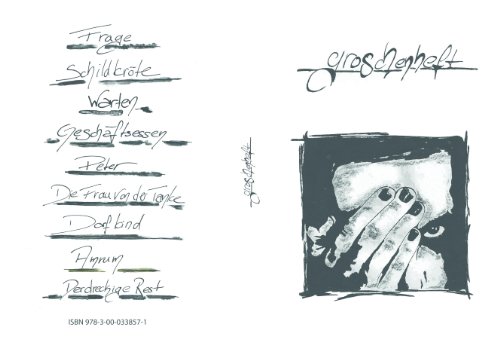 Frage
Schildkröte
Warten
Geschäftsessen
Peter
Die Frau von der Tanke
Dorfkind
Amrum
Der drechige Rest
ISBN 978-3-00-033857-1
groschenheft
groschenheft